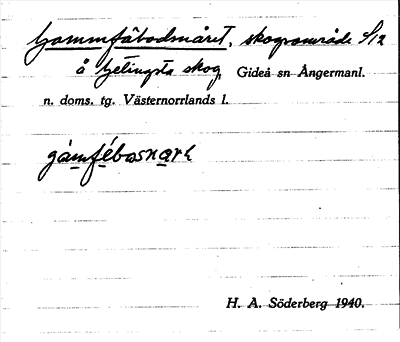 Gammfäbodsnåret, skogsområde S12
å Getingsta skog, Gideå sn Ångermanl.
n. doms. tg. Västernorrlands l.
H. A. Söderberg 1940.